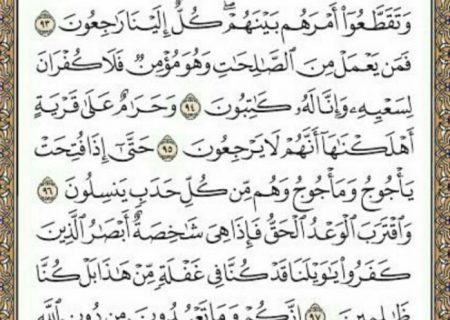 وَتَقَطَّعُوٓا۟ أَمْرَهُم بَيْنَهُمْ ۖ كُلٌّ إِلَيْنَا رَٰجِعُونَ ٩٣
فَمَن يَعْمَلْ مِنَ ٱلصَّٰلِحَٰتِ وَهُوَ مُؤْمِنٌ فَلَا كُفْرَانَ
لِسَعْيِهِۦ وَإِنَّا لَهُۥ كَٰتِبُونَ ٩٤ وَحَرَٰمٌ عَلَىٰ قَرْيَةٍ
أَهْلَكْنَٰهَآ أَنَّهُمْ لَا يَرْجِعُونَ ٩٥ حَتَّىٰٓ إِذَا فُتِحَتْ
يَأْجُوجُ وَمَأْجُوجُ وَهُم مِّن كُلِّ حَدَبٍ يَنسِلُونَ ٩٦
وَٱقْتَرَبَ ٱلْوَعْدُ ٱلْحَقُّ فَإِذَا هِىَ شَٰخِصَةٌ أَبْصَٰرُ ٱلَّذِينَ
كَفَرُوا۟ يَٰوَيْلَنَا قَدْ كُنَّا فِى غَفْلَةٍ مِّنْ هَٰذَا بَلْ كُنَّا
ظَٰلِمِينَ ٩٧ إِنَّكُمْ وَمَا تَعْبُدُونَ مِن دُونِ ٱللَّهِ